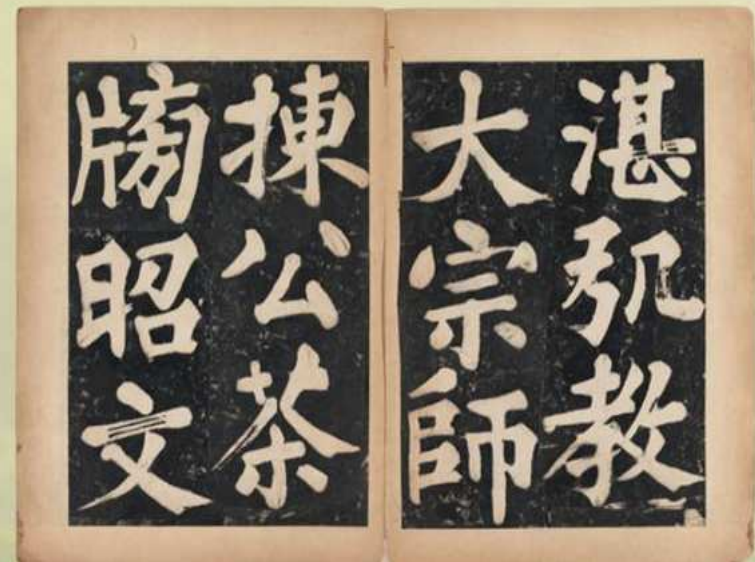 湛㲹教
大宗師
揀公茶
牓昭文